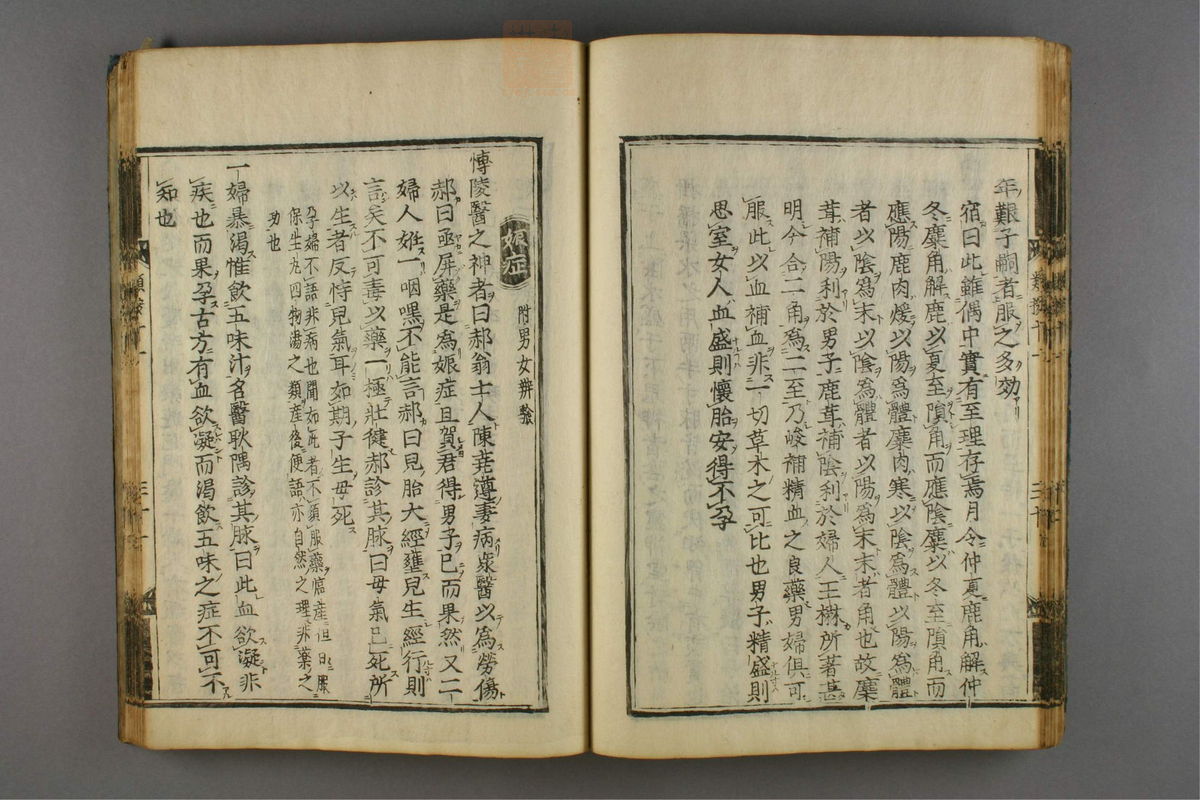 年艱子嗣者服之多効
宿曰此雖偶中實有至理存焉月令仲夏鹿角解仲
冬麋角解鹿以夏至隕角而應陰麋以冬至隕角而
應陽鹿肉煖以陽爲體麋肉寒以陰爲體以陽爲體
者以陰爲末以陰爲體者以陽爲末末者角也故麋
茸補陽利於男子鹿茸補陰利於婦人王楙所著甚
明今合二角爲一二至乃峻補精血之良藥男婦俱可
服此以血補血非一切草木之可比也男子精盛則
思室女人血盛則懷胎安得不孕
娠症 附男女辨驗
愽陵醫之神者曰郝翁士人陳堯遵妻病衆醫以為勞傷
郝曰亟屏藥是為娠症且賀君得男子已而果然又二
婦人姙一咽嘿不能言郝曰兒胎大經壅兒生經行則
言矣不可毒以藥一極壯健郝診其脉曰母氣已死所
以生者反恃兒氣耳如期子生母死
孕婦不語非病也聞如此者不須服藥臨産但日服
保生丸四物湯之類産後便語亦自然之理非藥之
功也
一婦暴渴惟飲五味汁名醫耿隅診其脉曰此血欲凝非
疾也而果孕古方有血欲凝而渴飲五味之症不可不
知也